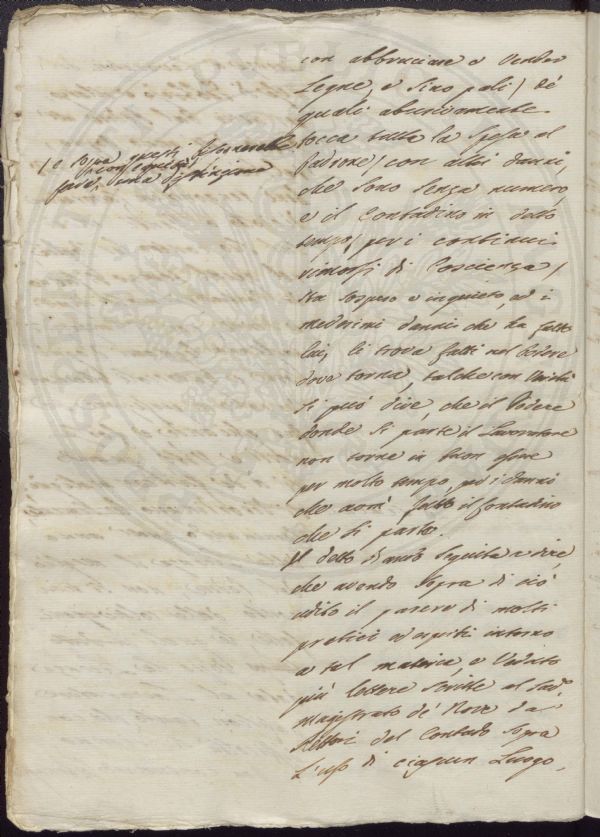 con abbruciare o vender
Legne, e sino pali / de'
quali abusivamente
tocca tutta la spesa al
Padrone / con altri danni,
che sono senza numero,
e il Contadino in detto
tempo / per i continui
rimorsi di Coscienza /
sta sospeso e inquieto, ed i
medesimi danni che ha fatto
lui, li trova fatti nel Podere
dove torna, talche con verità
si può dire, che il Podere
donde si parte il Lavoratore
non torna in buon essere
per molto tempo, per i danni
che avrà fatto il Contadino
che si parte.
Il detto seguita a dire,
che avendo sopra di ciò
udito il parere di molti
pratici ed esperti intorno
a tal materia, e veduto
più lettere scritte al Sud.o
Magistrato de' Nove da
Rettori del Contado sopra
L'uso di ciascun Luogo,
/ e sopra questi
fare una